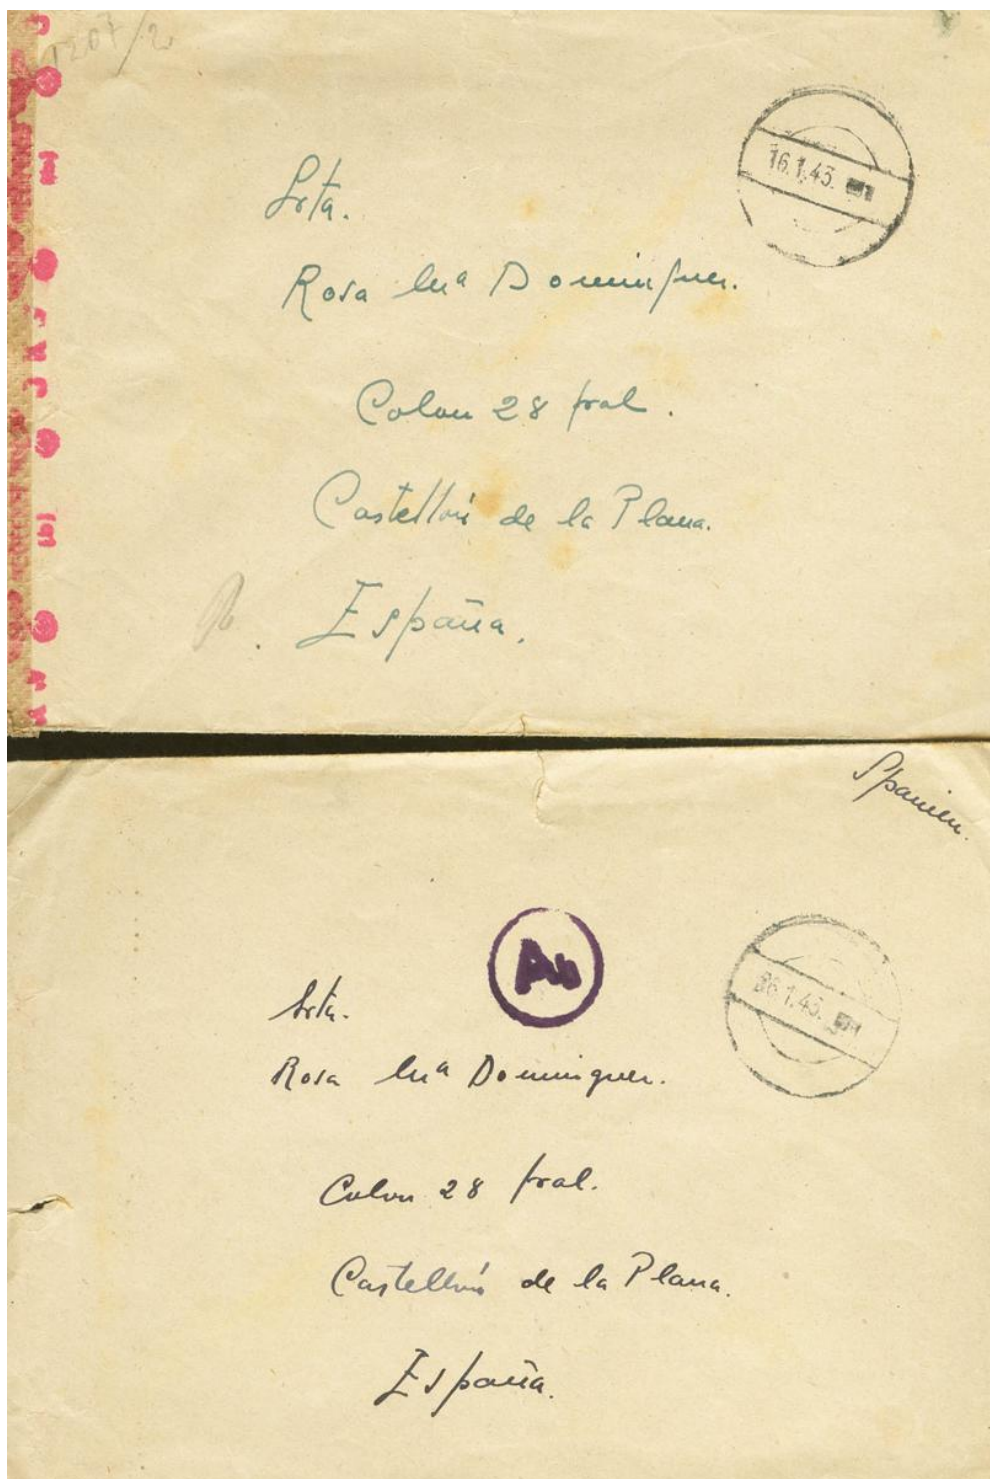 1207/2
16.1.43.
Srta.
Rosa Mª Dominguez.
Colon 28 pral.
Castellón de la Plana.
España.
Spanien.
Ab
16.1.43.
Srta.
Rosa Mª Dominguez.
Colon 28 pral.
Castellón de la Plana.
España.